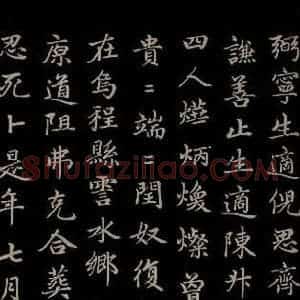 弼寧生適倪思齊
謙善止生適陳井
四人爃炳煥燦曽
貴=端=閏奴復
在烏程縣霅水鄉
原道阻弗克合葬
忍死卜是年七月
Shufaziliao.com